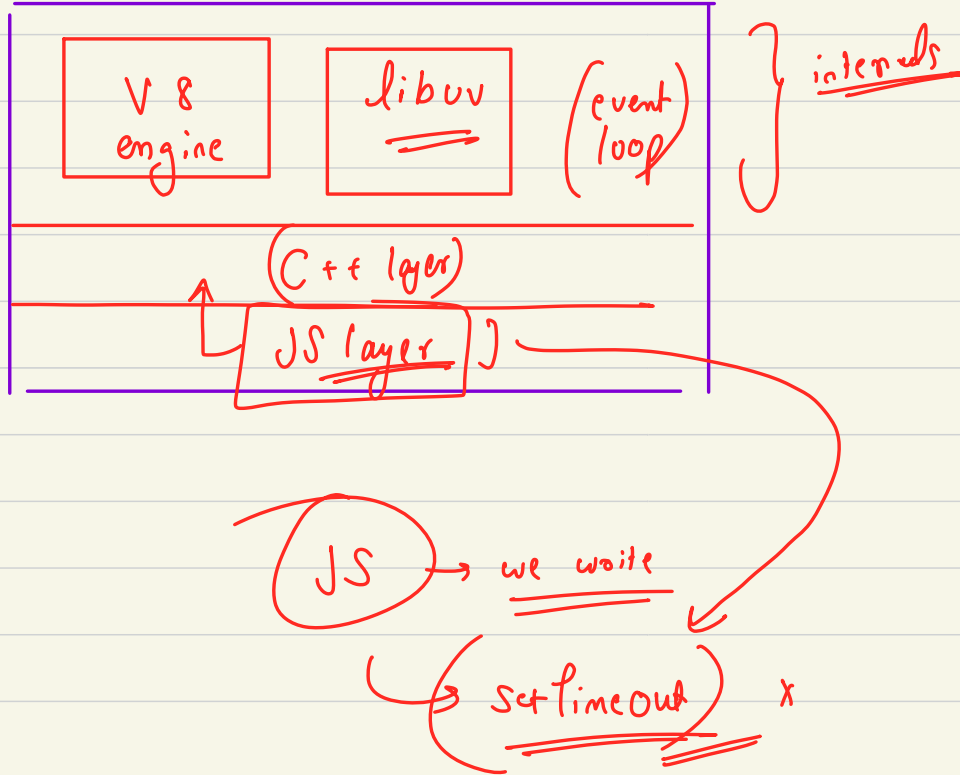 V 8
engine
libuv
(event
loop)
internals
(C++ layer)
JS layer ]
JS → we write
(setTimeout) x